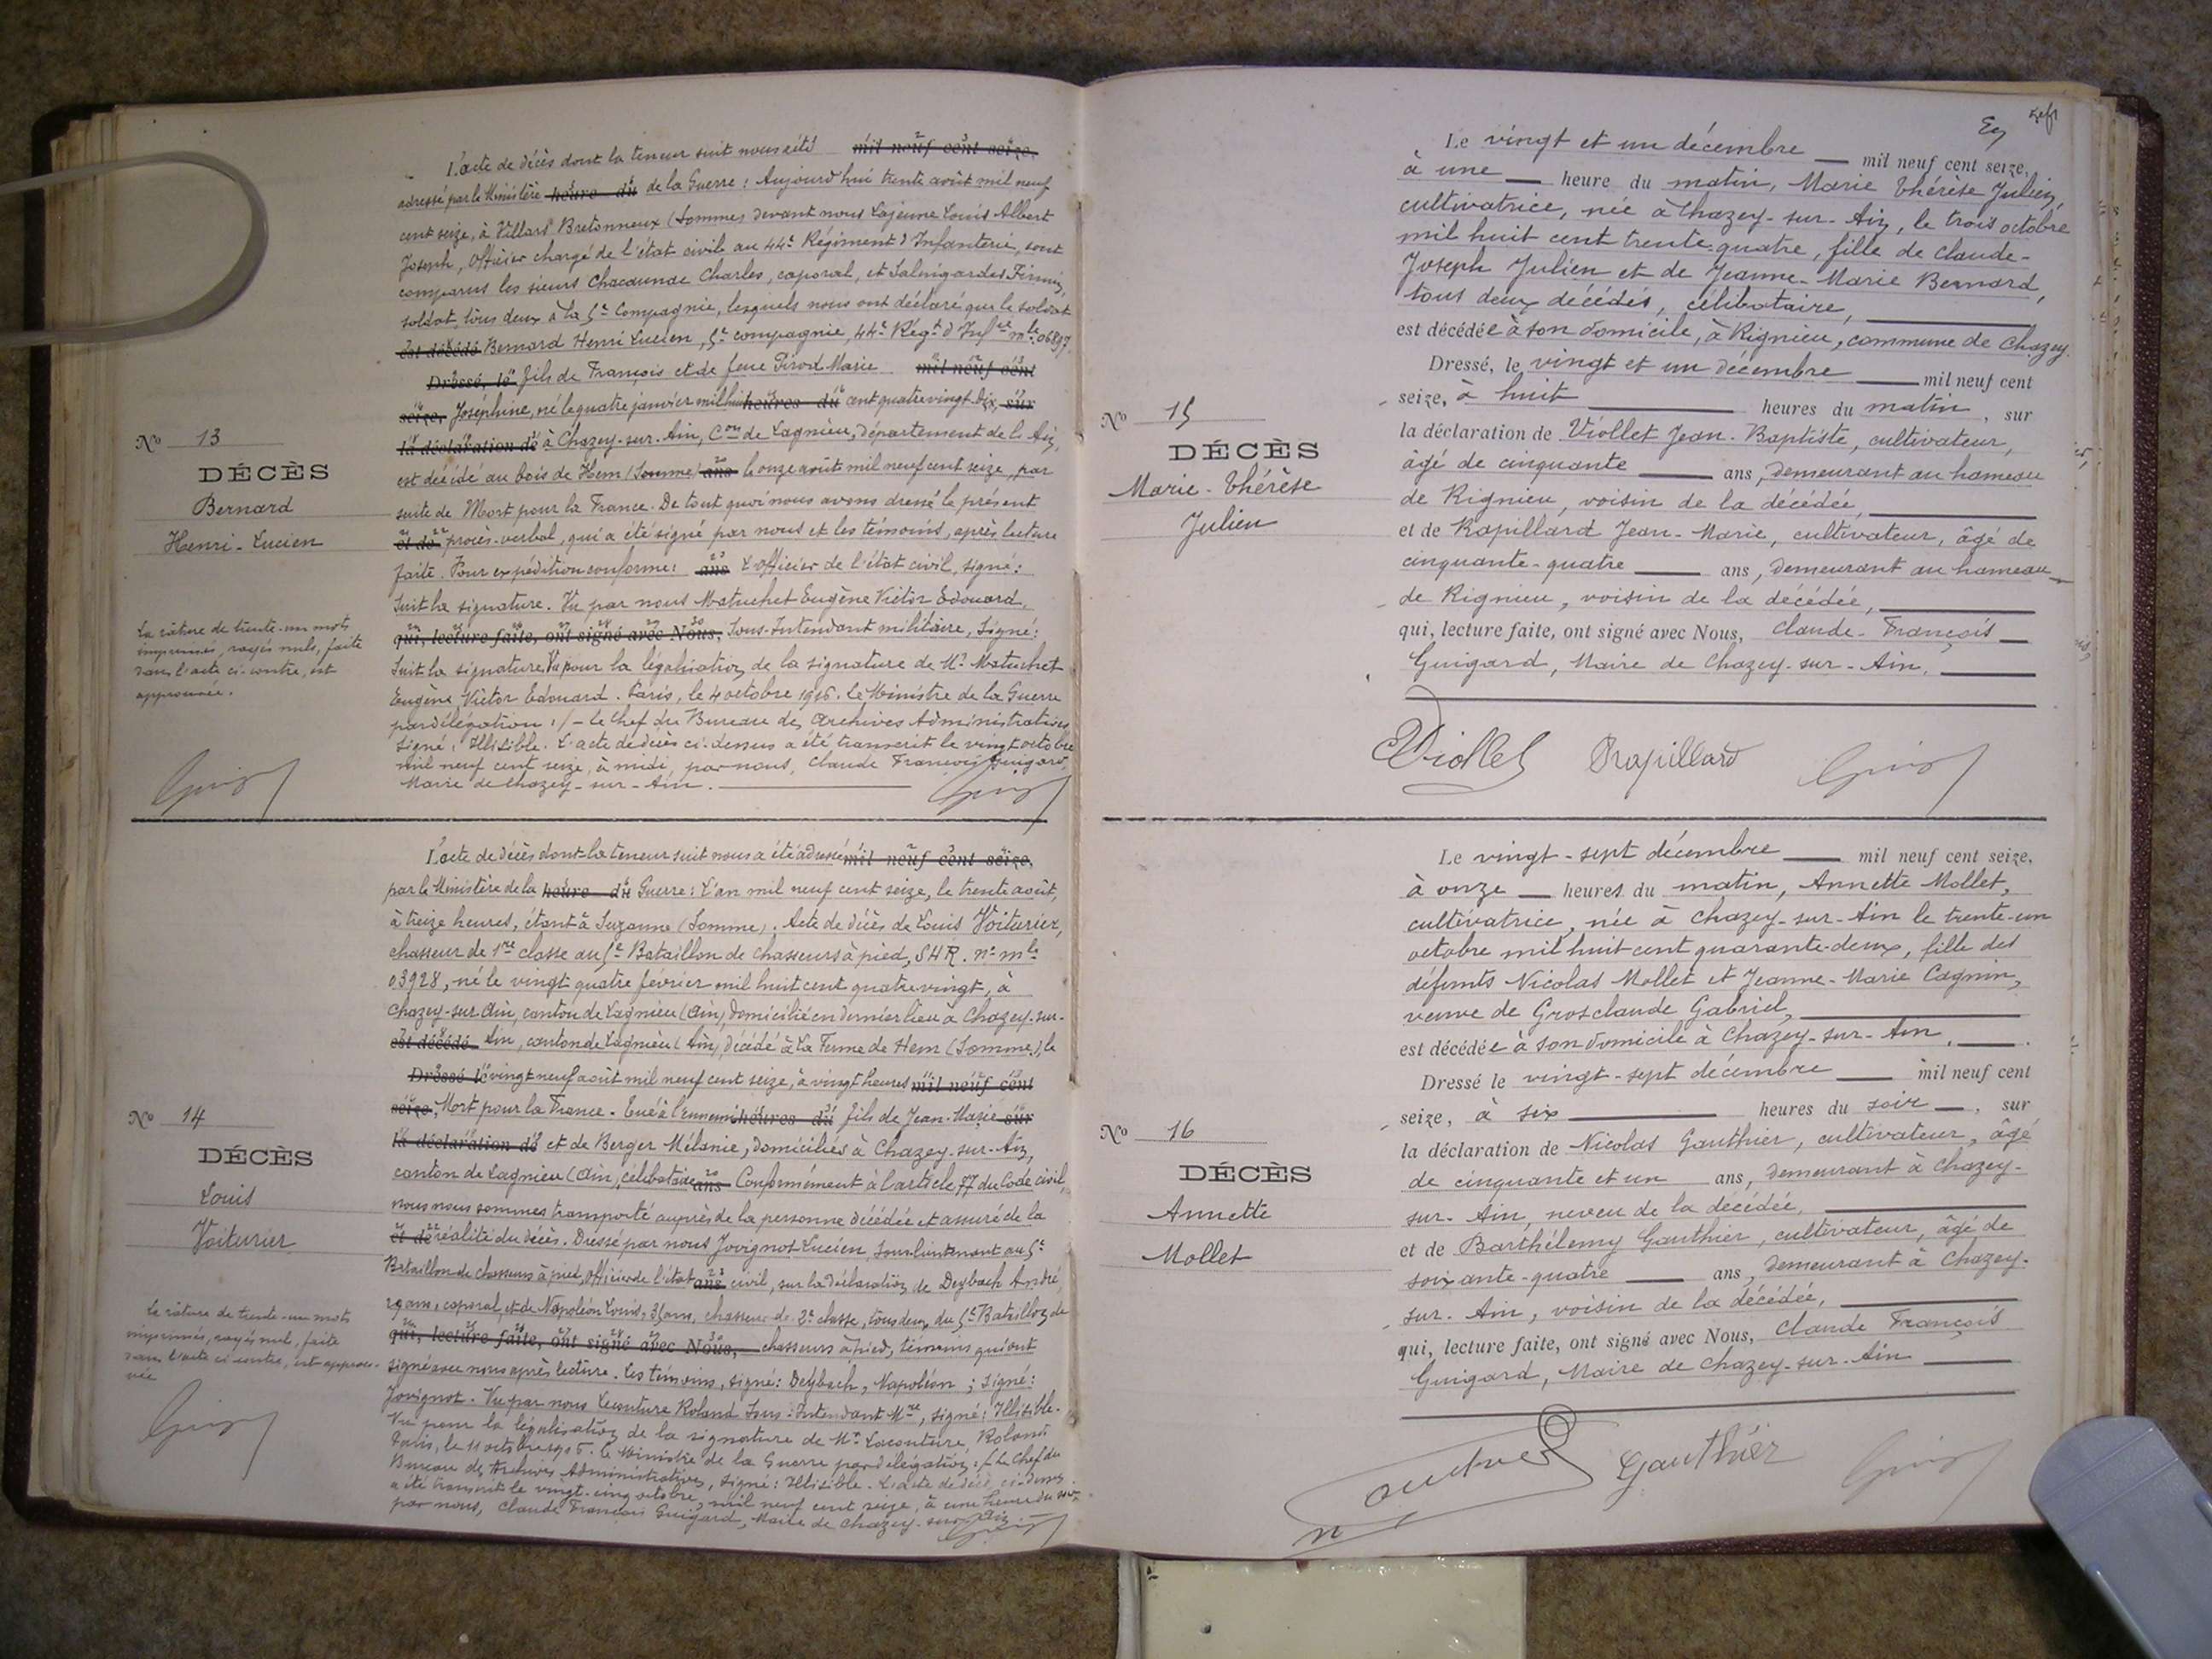 N° 13
DÉCÈS
Bernard
Henri-Lucien
La râture de trente-un mots
imprimés, rayés nuls, faite
dans l'acte ci-contre, est
approuvée.
L'acte de décès dont la teneur suit nous a été mil neuf cent seize,
adressé par le Ministère heure du de la Guerre : Aujourd'hui trente août mil neuf
cent seize, à Villars Bretonneux (Somme) devant nous Lajeune Louis Albert
Joseph, Officier chargé de l'état civil au 44e Régiment d'Infanterie, sont
comparus les sieurs Charles, caporal, et Firmin,
soldat, tous deux à la 5e Compagnie, lesquels nous ont déclaré que le soldat
est décédé Bernard Henri Lucien, 5e compagnie, 44e Régt d'Infie mle 06897,
Dressé, le fils de François et de feue Pirod Marie mil neuf cent
seize, Joséphine, né le quatre janvier mil huit heures du cent quatre vingt-dix, sur
la déclaration de à Chazey-sur-Ain, Con de Lagnieu, département de l'Ain,
est décédé au bois de Hem (Somme) ans le onze août mil neuf cent seize, par
suite de Mort pour la France. De tout quoi nous avons dressé le présent
et de procès-verbal, qui a été signé par nous et les témoins, après lecture
faite. Pour expédition conforme : ans L'officier de l'état civil, signé :
Suit la signature. Vu par nous Matuchet Eugène Victor Edouard,
qui, lecture faite, ont signé avec Nous, Sous-Intendant militaire, Signé :
Suit la signature. Vu pour la légalisation de la signature de Mr Matuchet
Eugène Victor Edouard. Paris, le 4 octobre 1916. Le Ministre de la Guerre
par délégation : /- Le Chef du Bureau des Archives Administratives
Signé : Illisible. L'acte de décès ci-dessus a été transcrit le vingt octobre
mil neuf cent seize, à midi, par nous, Claude François Guigard,
Maire de Chazey-sur-Ain.
N° 14
DÉCÈS
Louis
Voiturier
La râture de trente-un mots
imprimés, rayés nuls, faite
dans l'acte ci-contre, est approu-
vée
L'acte de décès dont la teneur suit nous a été adressé mil neuf cent seize,
par le Ministère de la heure du Guerre : L'an mil neuf cent seize, le trente août,
à treize heures, étant à Suzanne (Somme). Acte de décès de Louis Voiturier,
chasseur de 1re classe au 5e Bataillon de chasseurs à pied, SHR. n° mle
03928, né le vingt quatre février mil huit cent quatre vingt, à
Chazey-sur-Ain, canton de Lagnieu (Ain), domicilié en dernier lieu à Chazey-sur-
est décédé Ain, canton de Lagnieu (Ain) décédé à la Ferme de Hem (Somme), le
Dressé le vingt neuf août mil neuf cent seize, à vingt heures mil neuf cent
seize, Mort pour la France - Tué à l'ennemi heures du fils de Jean-Marie sur
la déclaration de et de Berger Mélanie, domiciliés à Chazey-sur-Ain,
canton de Lagnieu (Ain), célibataire ans Conformément à l'article 77 du Code civil,
nous nous sommes transporté auprès de la personne décédée et assuré de la
et de réalité du décès. Dressé par nous Jovignot Lucien, Sous lieutenant au 5e
Bataillon de chasseurs à pied, Officier de l'état ans civil, sur la déclaration de Deybach André,
29 ans, caporal, et de Napoléon Louis, 31 ans, chasseur de 2e classe, tous deux du 5e Bataillon de
qui, lecture faite, ont signé avec Nous, chasseurs à pied, témoins qui ont
signé avec nous après lecture. Les témoins, signé : Deybach, Napoléon ; Signé :
Jovignot. Vu par nous Lacouture Roland Sous-Intendant Mre, signé : Illisible.
Vu pour la légalisation de la signature de Mr Lacouture, Roland
Paris, le 11 octobre 1916. Le Ministre de la Guerre par délégation : / Le Chef du
Bureau des Archives Administratives, signé : Illisible. L'acte de décès ci-dessus
a été transcrit le vingt-cinq octobre, mil neuf cent seize, à une heure du soir,
par nous, Claude François Guigard, Maire de Chazey-sur-Ain.
N° 15
DÉCÈS
Marie-Thérèse
Julien
Le vingt et un décembre mil neuf cent seize,
à une heure du matin, Marie Thérèse Julien,
cultivatrice, née à Chazey-sur-Ain, le trois octobre
mil huit cent trente quatre, fille de Claude-
Joseph Julien et de Jeanne-Marie Bernard,
tous deux décédés, célibataire,
est décédée à son domicile, à Rignieu, commune de Chazey.
Dressé, le vingt et un décembre mil neuf cent
seize, à huit heures du matin, sur
la déclaration de Viollet Jean-Baptiste, cultivateur,
âgé de cinquante ans, demeurant au hameau
de Rignieu, voisin de la décédée,
et de Rapillard Jean-Marie, cultivateur, âgé de
cinquante-quatre ans, demeurant au hameau
de Rignieu, voisin de la décédée,
qui, lecture faite, ont signé avec Nous, Claude-François
Guigard, Maire de Chazey-sur-Ain,
Viollet Rapillard
N° 16
DÉCÈS
Annette
Mollet
Le vingt-sept décembre mil neuf cent seize,
à onze heures du matin, Annette Mollet,
cultivatrice, née à Chazey-sur-Ain le trente-un
octobre mil huit cent quarante-deux, fille des
défunts Nicolas Mollet et Jeanne-Marie Cagnin,
veuve de Grosclaude Gabriel,
est décédée à son domicile à Chazey-sur-Ain,
Dressé le vingt-sept décembre mil neuf cent
seize, à six heures du soir, sur
la déclaration de Nicolas Gauthier, cultivateur, âgé
de cinquante et un ans, demeurant à Chazey-
sur-Ain, neveu de la décédée,
et de Barthélemy Gauthier, cultivateur, âgé de
soixante-quatre ans, demeurant à Chazey-
sur-Ain, voisin de la décédée,
qui, lecture faite, ont signé avec Nous, Claude François
Guigard, Maire de Chazey-sur-Ain
Gauthier